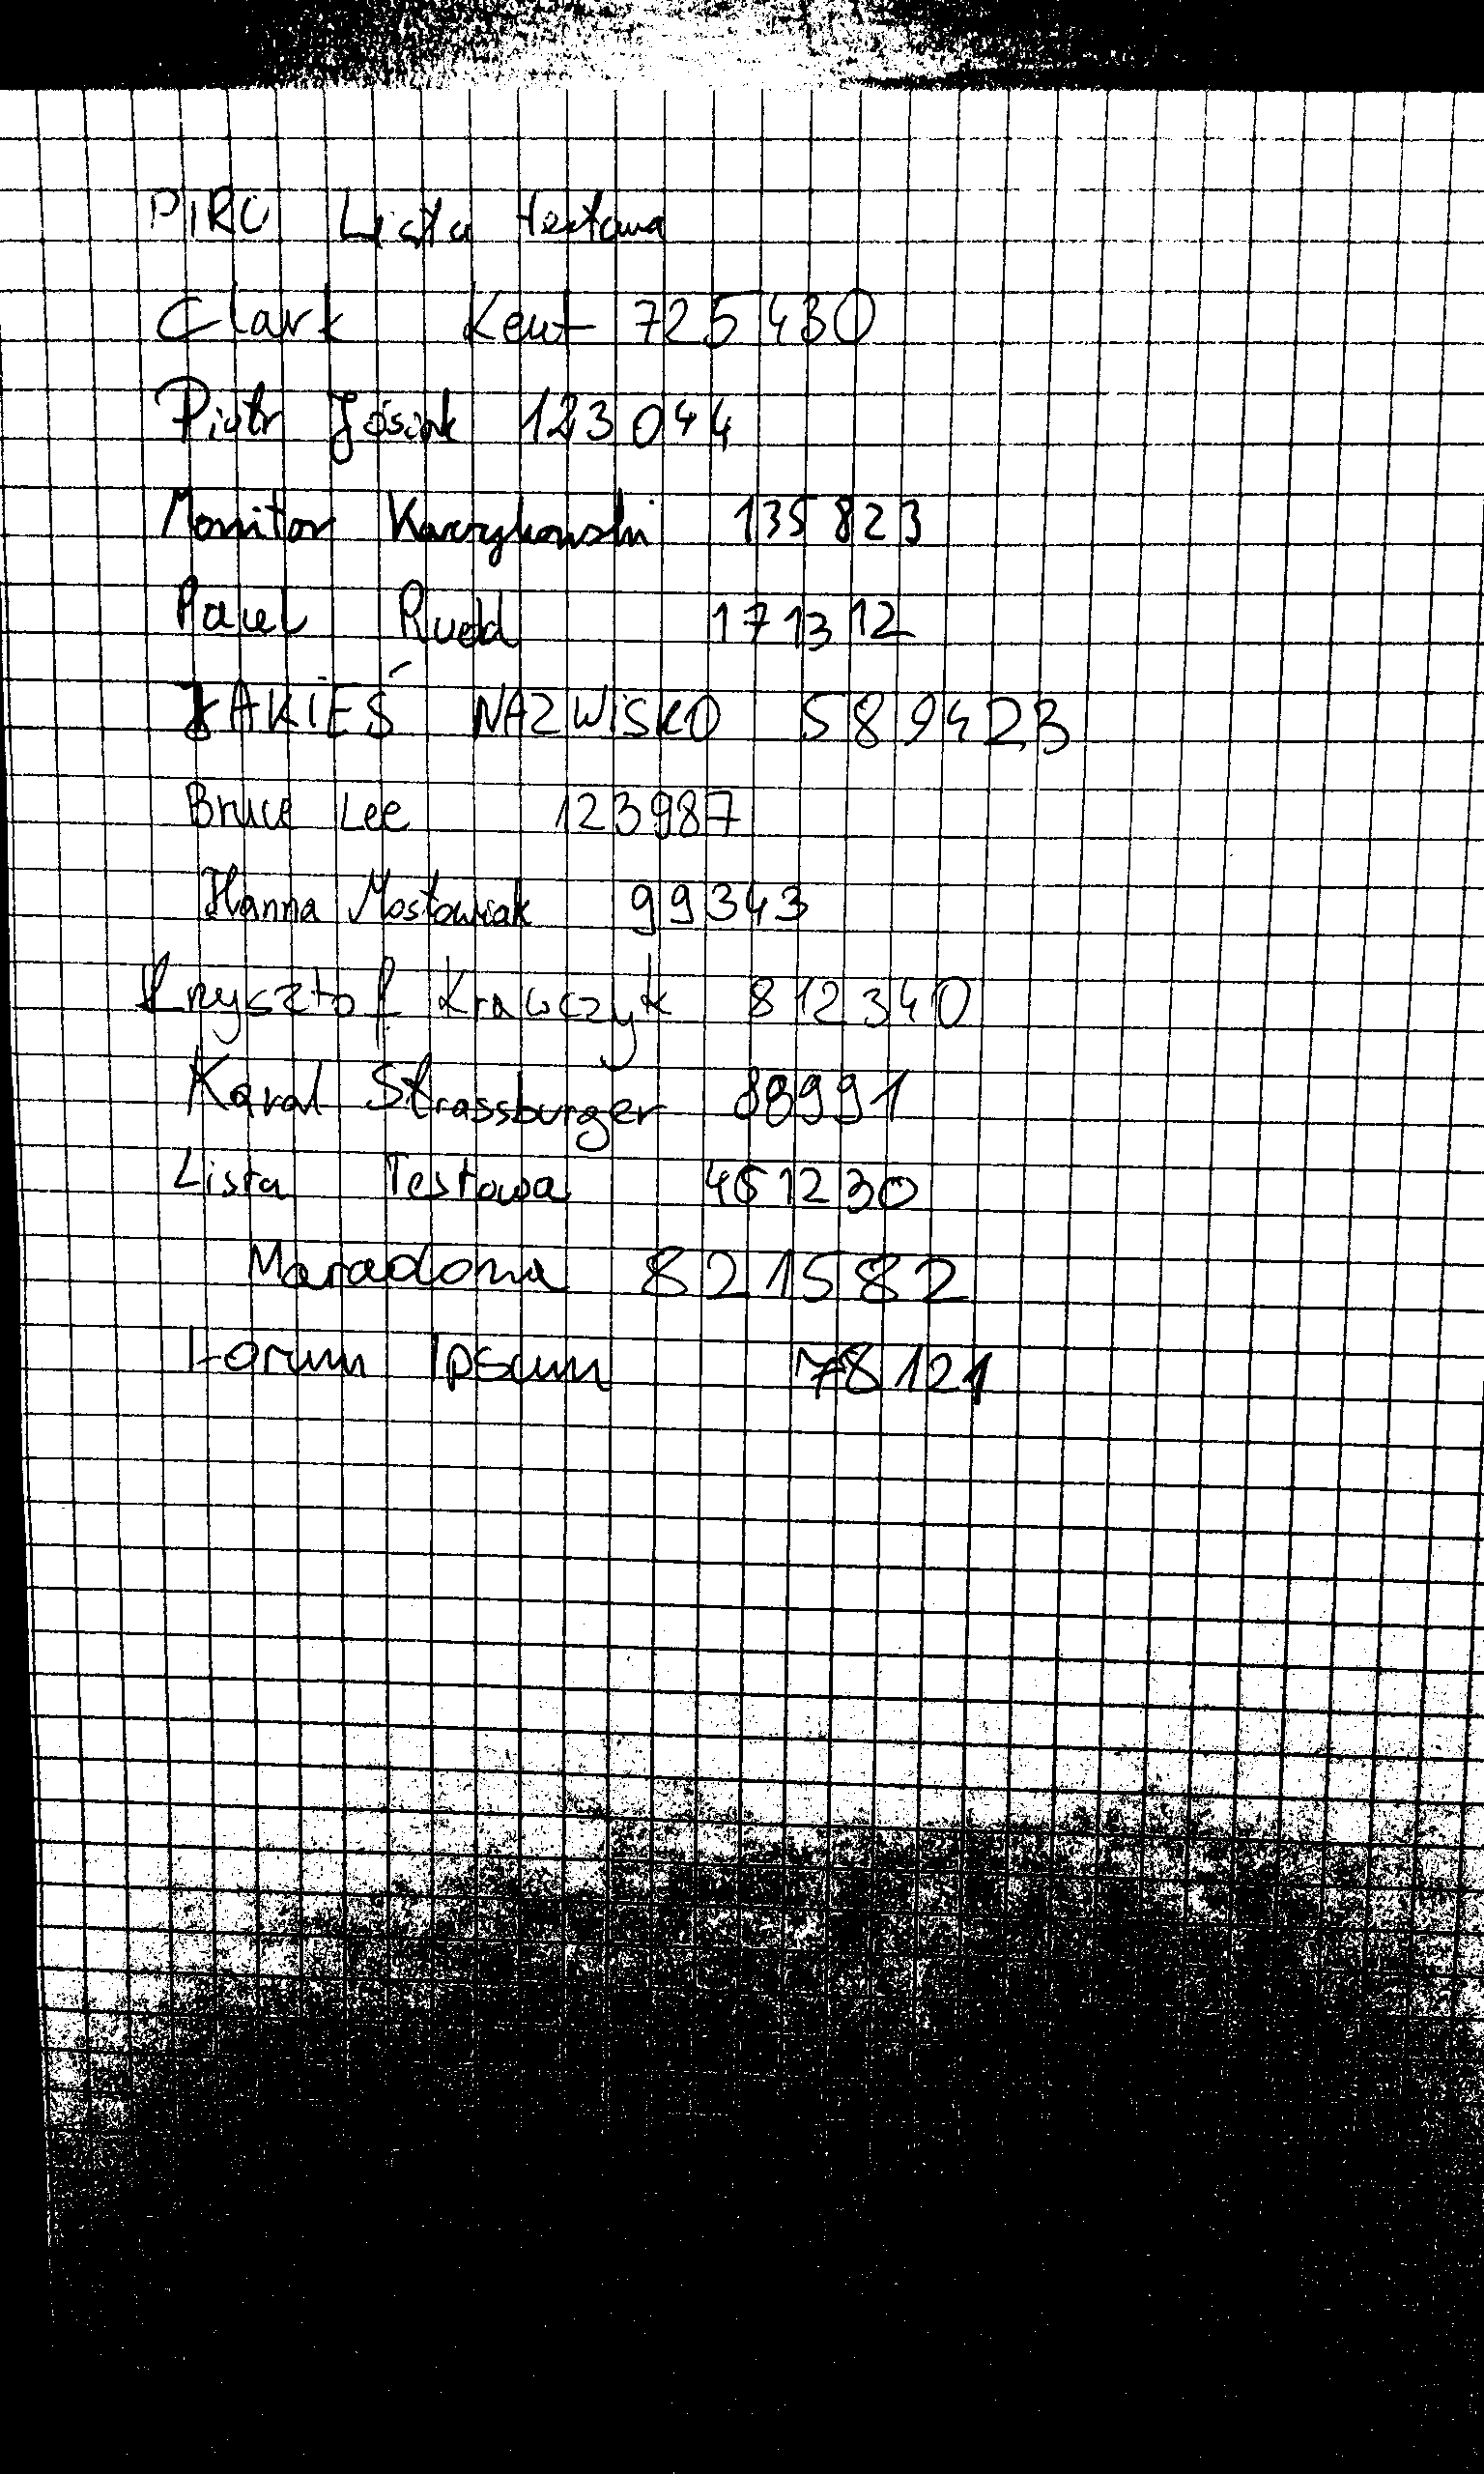 PIRO Lista testowa
Clark Kent 725430
Piotr Jósiak 123044
Monitor Karzykowski 135823
Paul Rudd 171312
JAKIEŚ NAZWISKO 589423
Bruce Lee 123987
Hanna Mostowiak 99343
Krzysztof Krawczyk 812340
Karol Strassburger 89991
Lista Testowa 461230
Maradona 821582
Lorum Ipsum 78121